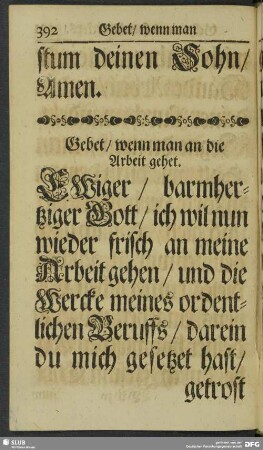 392 Gebet/ wenn man
stum deinen Sohn/
Amen.
Gebet/ wenn man an die
Arbeit gehet.
EWiger / barmher-
tziger Gott/ ich wil nun
wieder frisch an meine
Arbeit gehen/ und die
Wercke meines ordent-
lichen Beruffs/ darein
du mich gesetzet hast/
getrost
SLUB
DFG